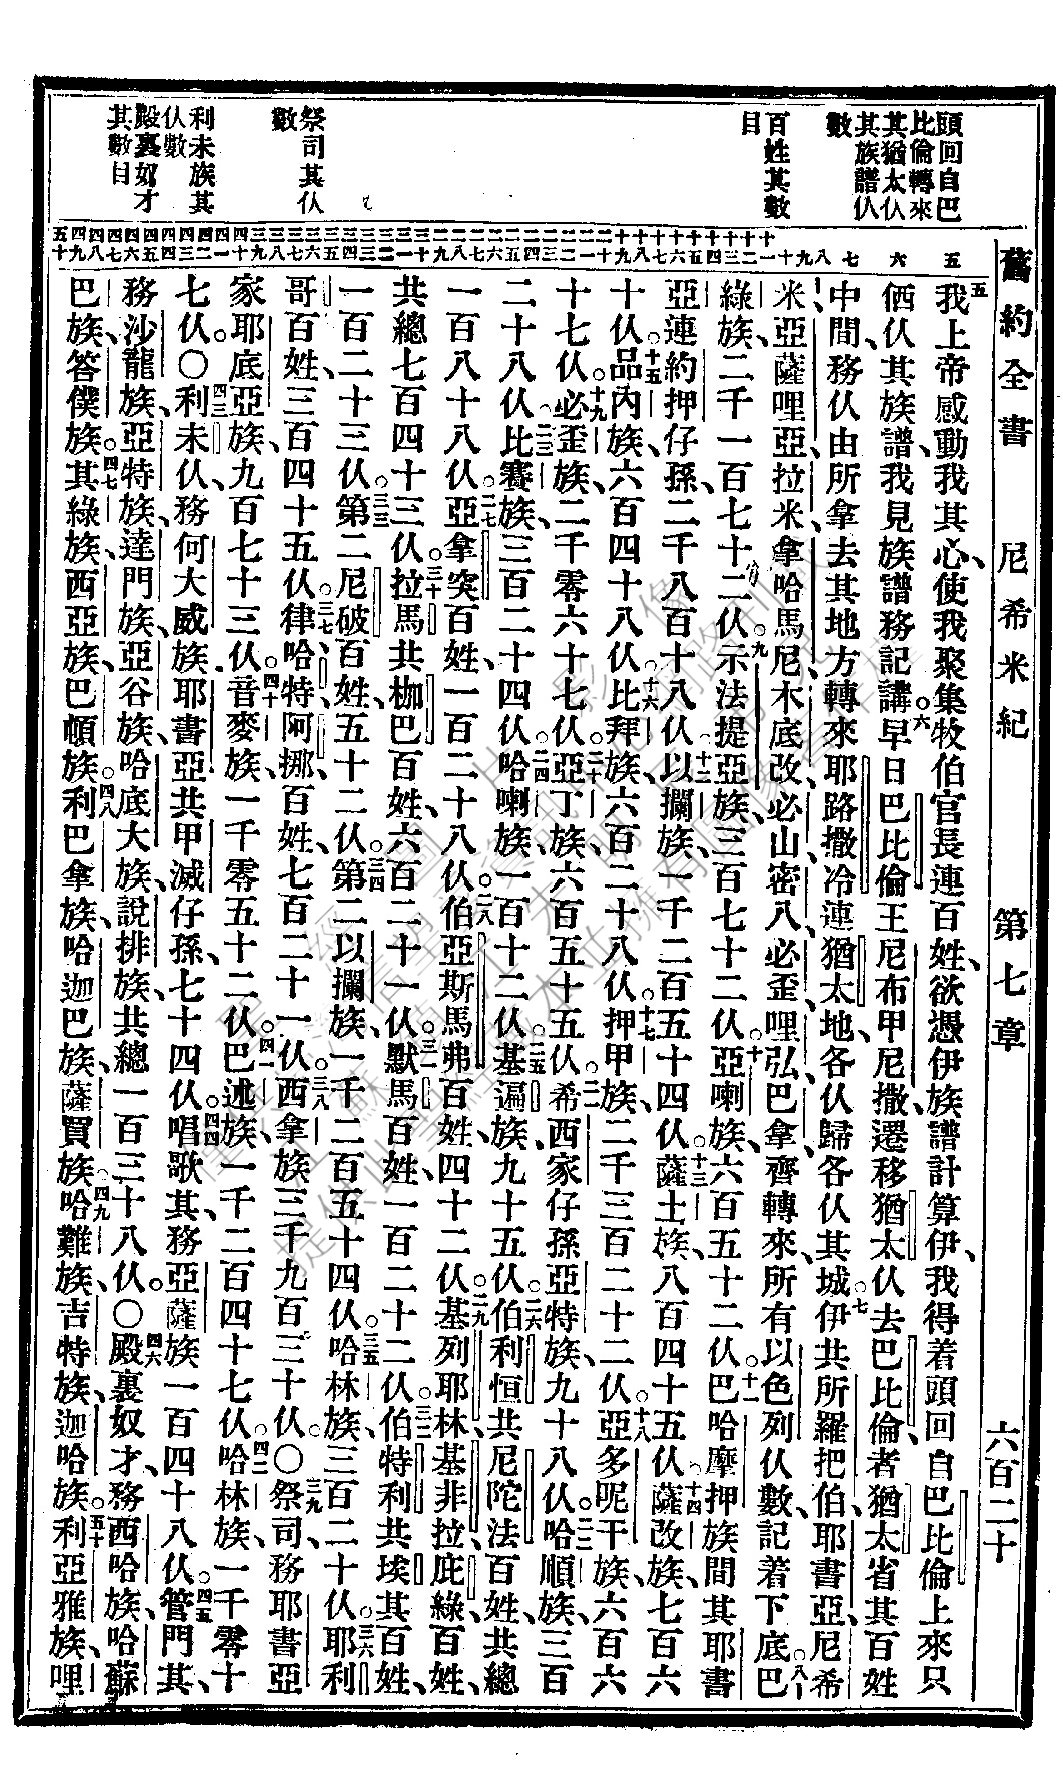 舊約全書 尼希米紀 第七章 六百二十
頭回自巴
比倫轉來
其猶太仸
其族譜仸
數
百姓其數
目
祭司其仸
數
利未族其
仸數
殿裏奴才
其數目
五 六 七 八 九 十 十一 十二 十三 十四 十五 十六 十七 十八 十九 二十 二一 二二 二三 二四 二五 二六 二七 二八 二九 三十 三一 三二 三三 三四 三五 三六 三七 三八 三九 四十 四一 四二 四三 四四 四五 四六 四七 四八 四九 五十
五我上帝感動我其心、使我聚集牧伯官長連百姓、欲憑伊族譜計算伊、我得着頭回自巴比倫上來只
仸其族譜、我見族譜務記講。六早日巴比倫王尼布甲尼撒遷移猶太仸去巴比倫者、猶太省其百姓
中間、務仸由所拿去其地方轉來耶路撒冷連猶太地、各仸歸各仸其城。七伊共所羅把伯、耶書亞、尼希
米、亞薩哩亞、拉米、拿哈馬尼、木底改、必山、密八、必歪、哩弘、巴拿、齊轉來、所有以色列仸數、記着下底。八巴
綠族、二千一百七十二仸。九示法提亞族、三百七十二仸。十亞喇族、六百五十二仸。十一巴哈摩押族間其耶書
亞連約押仔孫、二千八百十八仸。十二以攔族、一千二百五十四仸。十三薩土族、八百四十五仸。十四薩改族、七百六
十仸。十五品內族、六百四十八仸。十六比拜族、六百二十八仸。十七押甲族、二千三百二十二仸。十八亞多呢干族、六百六
十七仸。十九必歪族、二千零六十七仸。二十亞丁族、六百五十五仸。二一希西家仔孫亞特族、九十八仸。二二哈順族、三百
二十八仸。二三比賽族、三百二十四仸。二四哈喇族、一百十二仸。二五基遍族、九十五仸。二六伯利恒共尼陀法百姓、共總
一百八十八仸。二七亞拿突百姓、一百二十八仸。二八伯亞斯馬弗百姓、四十二仸。二九基列耶林、基非拉、庇綠百姓、
共總七百四十三仸。三十拉馬共枷巴百姓、六百二十一仸。三一默馬百姓、一百二十二仸。三二伯特利共埃其百姓、
一百二十三仸。三三第二尼破百姓、五十二仸。三四第二以攔族、一千二百五十四仸。三五哈林族、三百二十仸。三六耶利
哥百姓、三百四十五仸。三七律哈特阿挪百姓、七百二十一仸。三八西拿族、三千九百三十仸。〇三九祭司務耶書亞
家耶底亞族、九百七十三仸。四十音麥族、一千零五十二仸。四一巴述族、一千二百四十七仸。四二哈林族、一千零十
七仸。〇四三利未仸、務何大威族、耶書亞共甲滅仔孫、七十四仸。四四唱歌其、務亞薩族、一百四十八仸。四五管門其、
務沙龍族、亞特族、達門族、亞谷族、哈底大族、說排族、共總一百三十八仸。〇四六殿裏奴才、務西哈族、哈蘇
巴族、答僕族。四七其綠族、西亞族、巴頓族。四八利巴拿族、哈迦巴族、薩買族。四九哈難族、吉特族、迦哈族。五十利亞雅族、哩